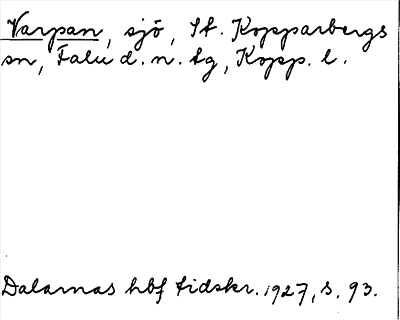 Varpan, sjö, St. Kopparbergs
sn, Falu d. n. tg, Kopp. l.
Dalarnas hbf tidskr. 1927, s. 93.